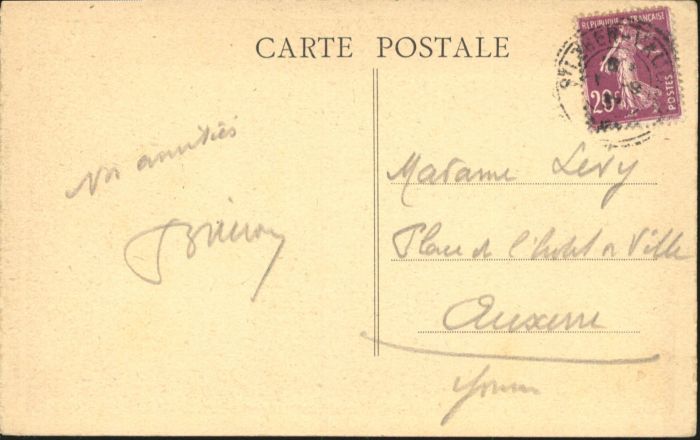 CARTE POSTALE
REPUBLIQUE FRANÇAISE
20c
POSTES
Nos amitiés
Madame Levy
Place de l'hotel de Ville
Auxerre
Yonne